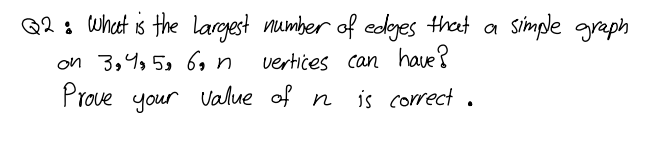 Q2: What is the largest number of edges that a simple graph
on 3,4,5, 6, n vertices can have?
Prove your value of n is correct.